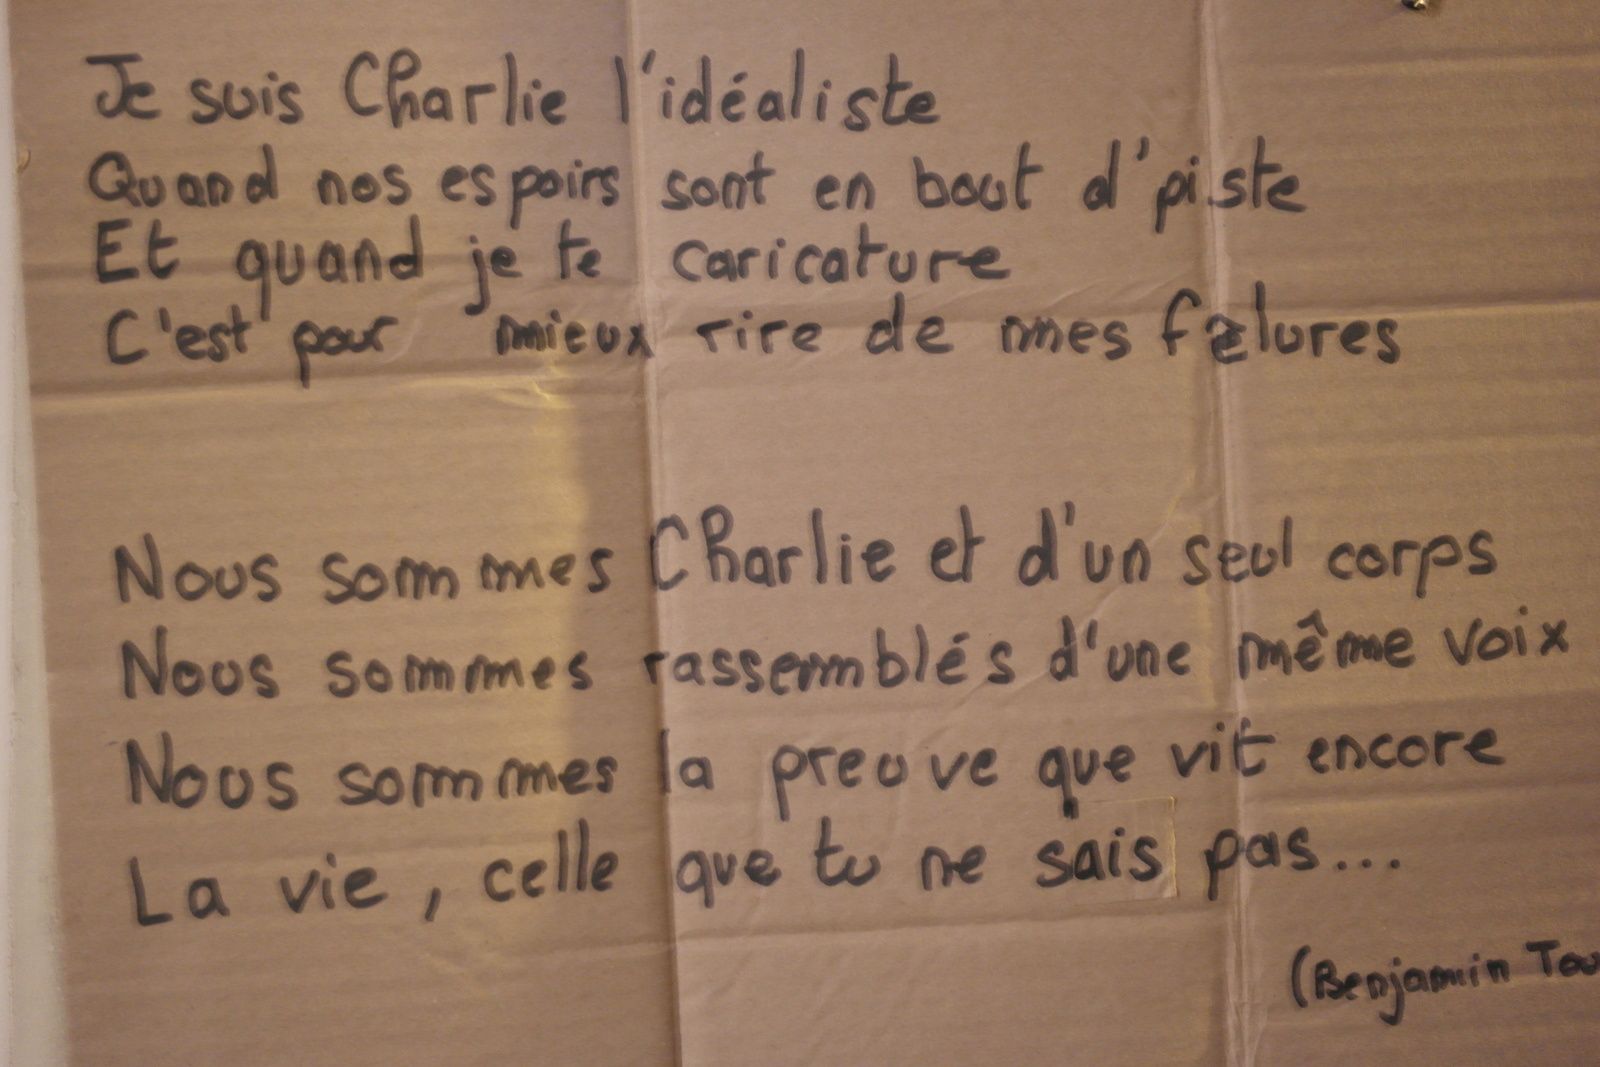 Je suis Charlie l'idéaliste
Quand nos espoirs sont en bout d'piste
Et quand je te caricature
C'est pour mieux rire de mes fêlures
Nous sommes Charlie et d'un seul corps
Nous sommes rassemblés d'une même voix
Nous sommes la preuve que vit encore
La vie, celle que tu ne sais pas...
(Benjamin